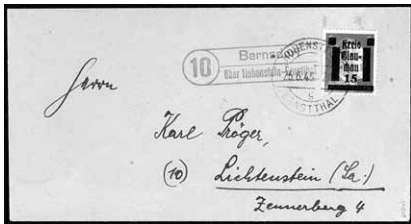 10
Bernsdorf
über Hohenstein-Ernstthal
HOHENSTEIN
25.6.45
g
ERNSTTHAL
Kreis
Glau-
chau
15
Herrn
Karl Pröger,
(10) Lichtenstein (Sa.)
Zennerberg 4